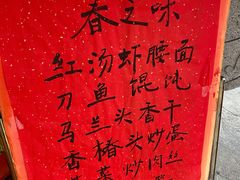 春之味
红汤虾腰面
刀鱼馄饨
马兰头香干
香椿头炒蛋
菜炒肉丝